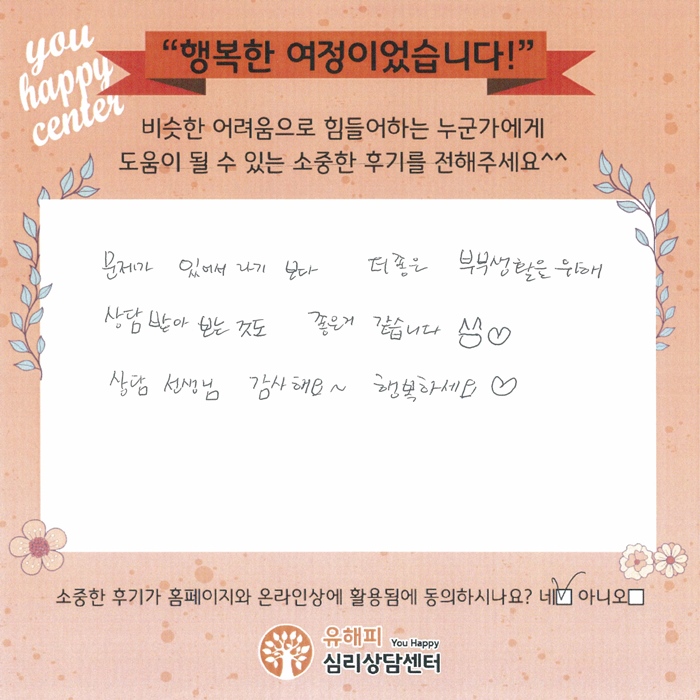 you
happy
center
“행복한 여정이었습니다!”
비슷한 어려움으로 힘들어하는 누군가에게
도움이 될 수 있는 소중한 후기를 전해주세요^^
문제가 있어서 라기 보다 더 좋은 부부생활을 위해
상담 받아 보는 것도 좋은거 같습니다 ^^♡
상담 선생님 감사해요~ 행복하세요 ♡
소중한 후기가 홈페이지와 온라인상에 활용됨에 동의하시나요? 네☑ 아니오☐
유해피 You Happy
심리상담센터